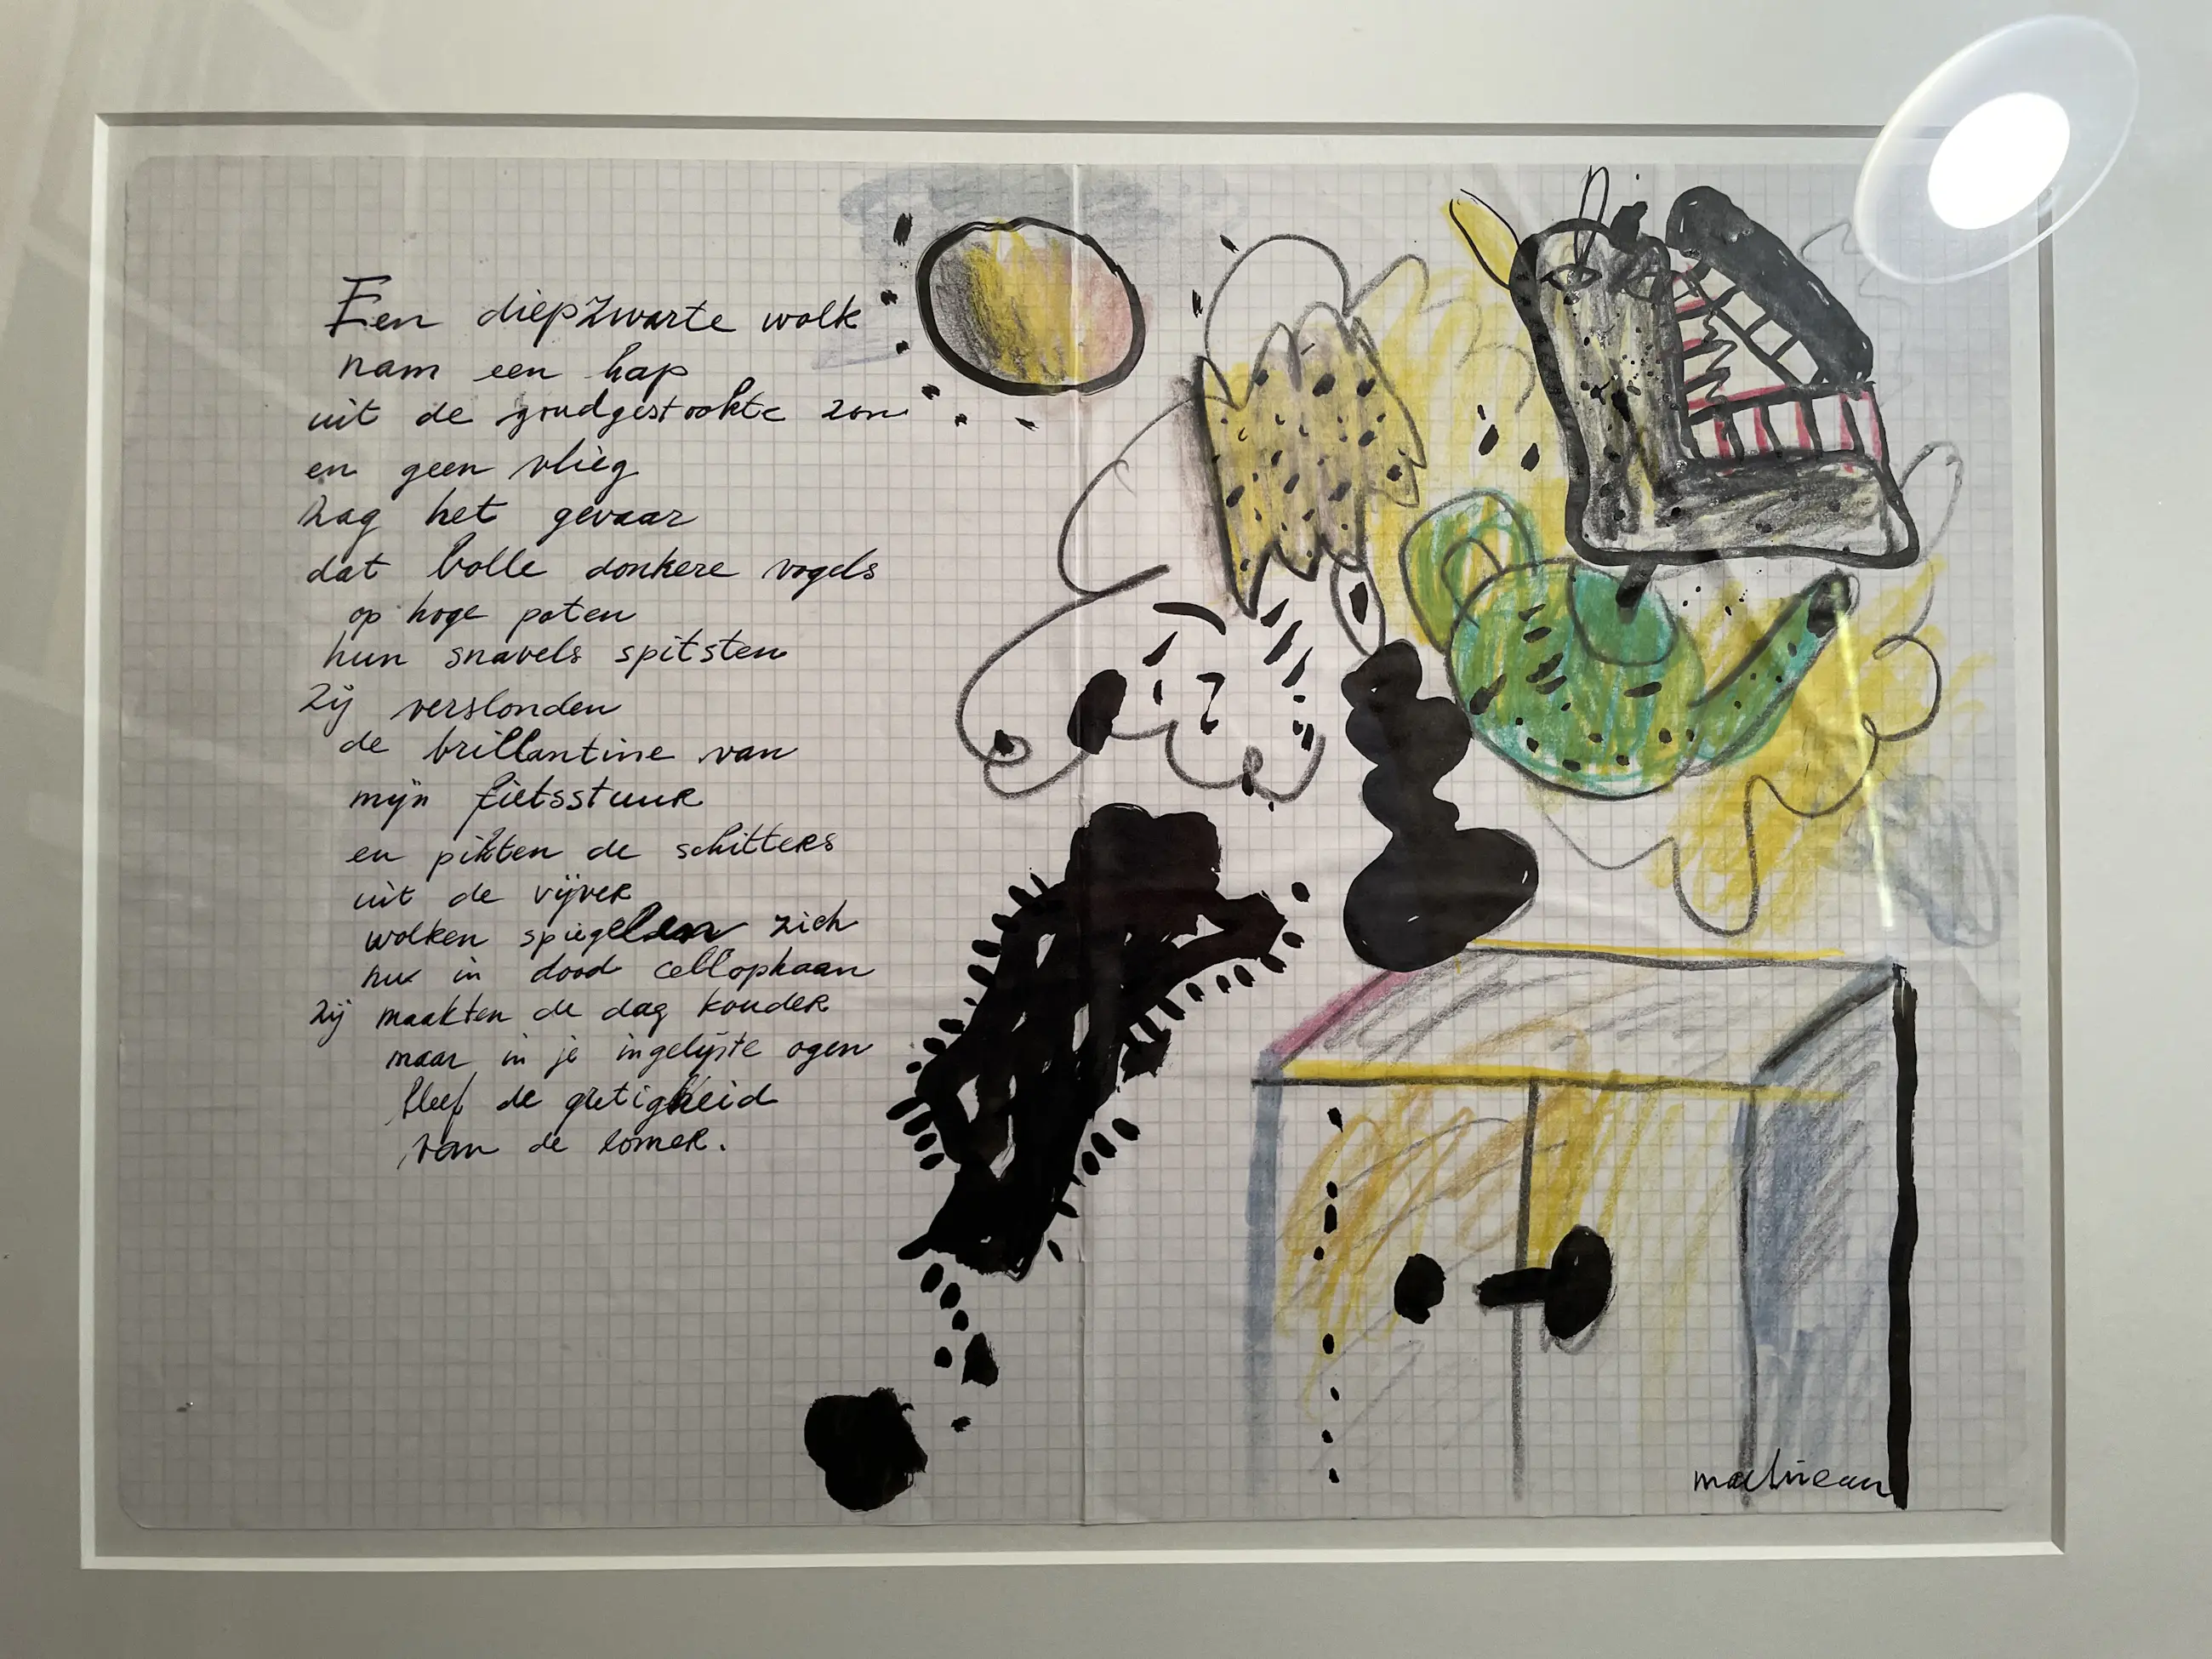 Een diepzwarte wolk
nam een hap
uit de goudgestookte zon
en geen vlieg
zag het gevaar
dat bolle donkere vogels
op hoge poten
hun snavels spitsten
Zij verslonden
de brillantine van
mijn fietsstuur
en pikten de schitters
uit de vijver
wolken spiegelen zich
nu in dood cellophaan
Zij maakten de dag kouder
maar in je ingelijste ogen
bleef de gretigheid
van de zomer.